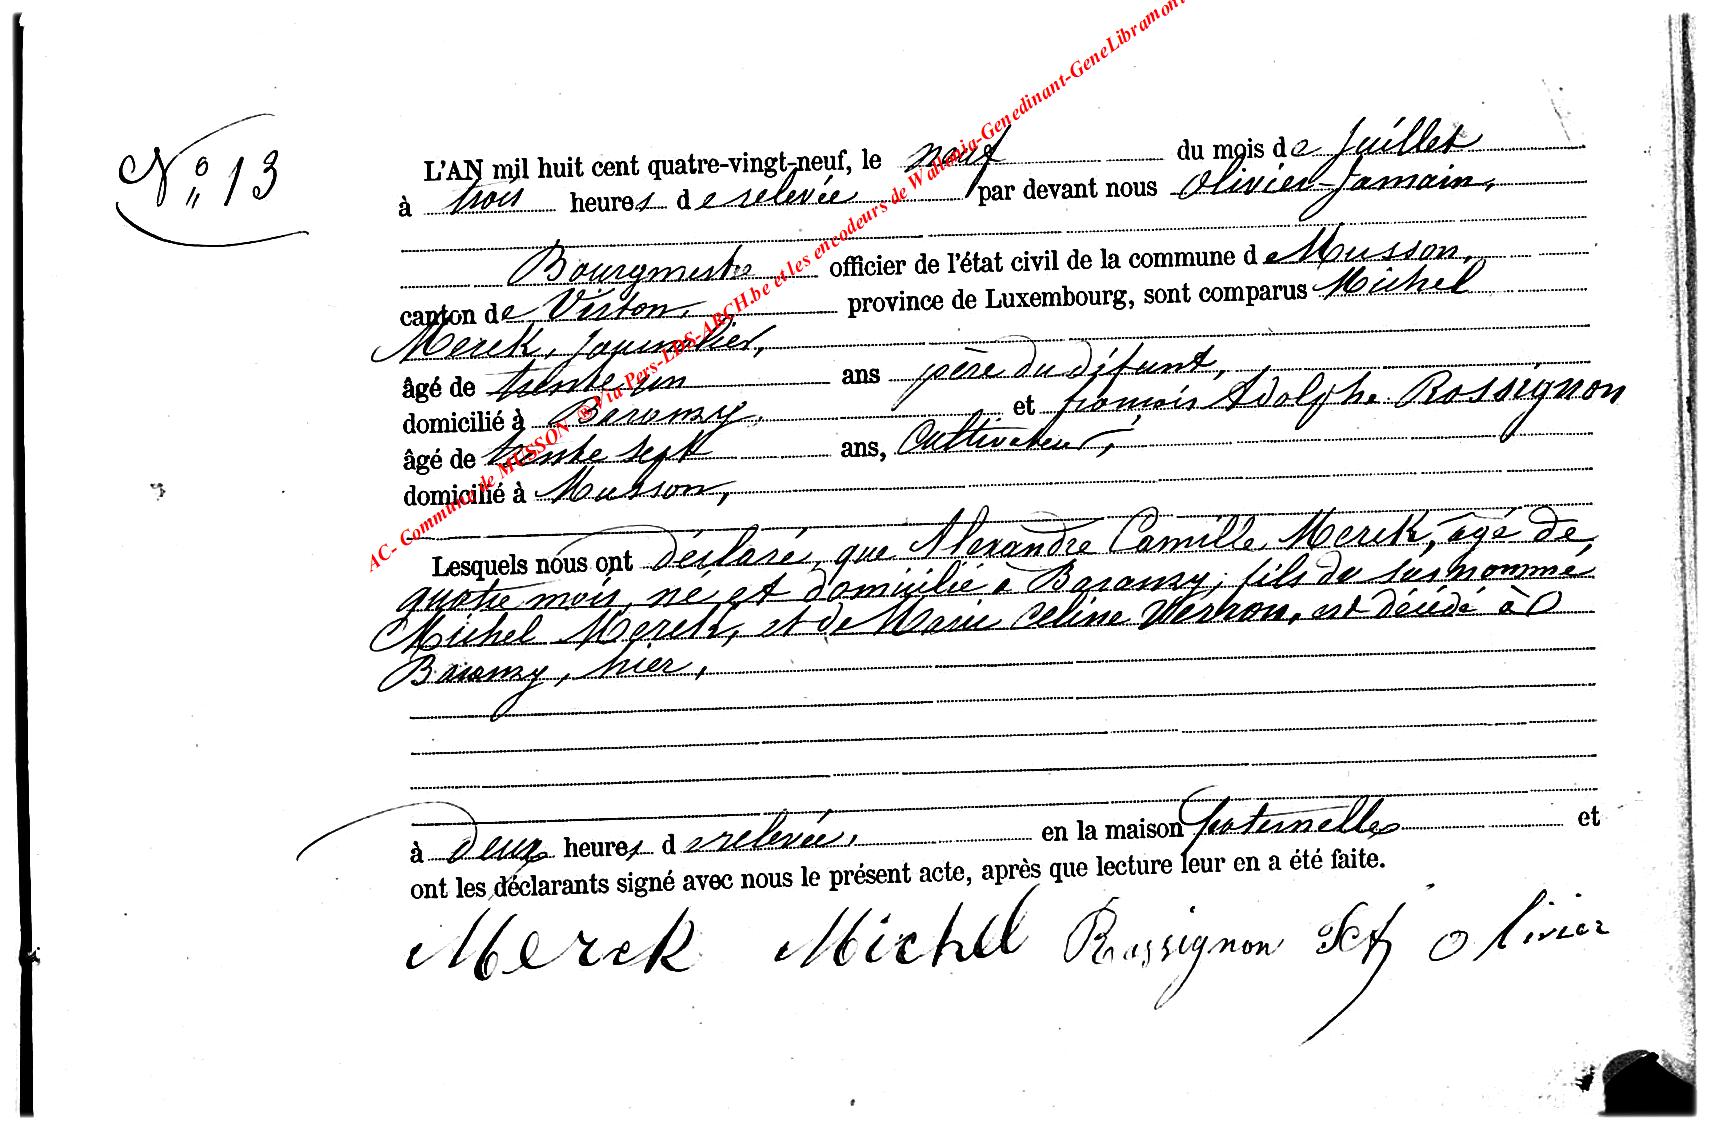 N° 13
L'AN mil huit cent quatre-vingt-neuf, le neuf du mois de Juillet
à trois heures de relevée par devant nous Olivier Jamain,
Bourgmestre officier de l'état civil de la commune de Musson,
canton de Virton, province de Luxembourg, sont comparus Michel
Merck, journalier,
âgé de trente un ans père du défunt,
domicilié à Baranzy, et françois Adolphe Rossignon
âgé de trente sept ans, Cultivateur,
domicilié à Musson,
Lesquels nous ont déclaré que Alexandre Camille Merck, âgé de
quatre mois, né et domicilié à Baranzy, fils du susnommé
Michel Merck, et de Marie Celine Verron, est décédé à
Baranzy, hier,
à deux heures de relevée, en la maison paternelle et
ont les déclarants signé avec nous le présent acte, après que lecture leur en a été faite.
Merck Michel Rossignon Olivier
AC- Commune de MUSSON ® Via Pers-LDS-ARCH.be et les encodeurs de Wallonia-Genedinant-GeneLibramont